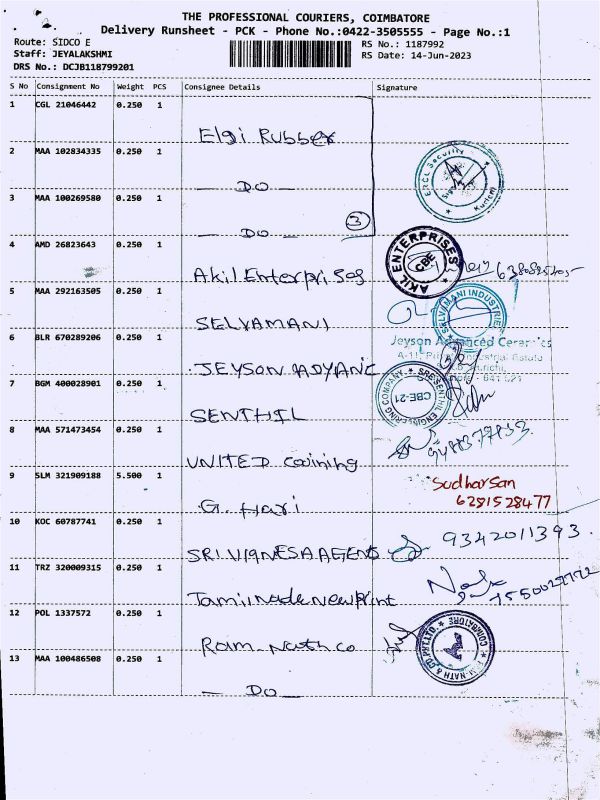 THE PROFESSIONAL COURIERS, COIMBATORE
Delivery Runsheet - PCK - Phone No.:0422-3505555 - Page No.:1
Route: SIDCO E
Staff: JEYALAKSHMI
DRS No.: DCJB118799201
RS No.: 1187992
RS Date: 14-Jun-2023
S No Consignment No Weight PCS Consignee Details Signature
1 CGL 21046442 0.250 1
Elgi Rubber
2 MAA 102834335 0.250 1
— DO —
ERCL Security
Kurichi
3 MAA 100269580 0.250 1
— DO — 3
4 AMD 26823643 0.250 1
Akil Enterprises
AKIL ENTERPRISES
CBE
5 MAA 292163505 0.250 1
SELVAMANI
SELVAMANI INDUSTRIES
6 BLR 670289206 0.250 1
JEYSON ADVANC
Jeyson Advanced Ceramics
7 BGM 400028901 0.250 1
SENTHIL
SRI SENTHIL ENGINEERING COMPANY
CBE-21
8 MAA 571473454 0.250 1
UNITED
9 SLM 321909188 5.500 1
G. Hari
Sudharsan
6281528477
10 KOC 60787741 0.250 1
SRI VIGNESA AGENS
9342011393
11 TRZ 320009315 0.250 1
Tamil Nade New Print
12 POL 1337572 0.250 1
Ram Nath co
NATH & CO. PVT. LTD.
COIMBATORE
13 MAA 100486508 0.250 1
— DO —